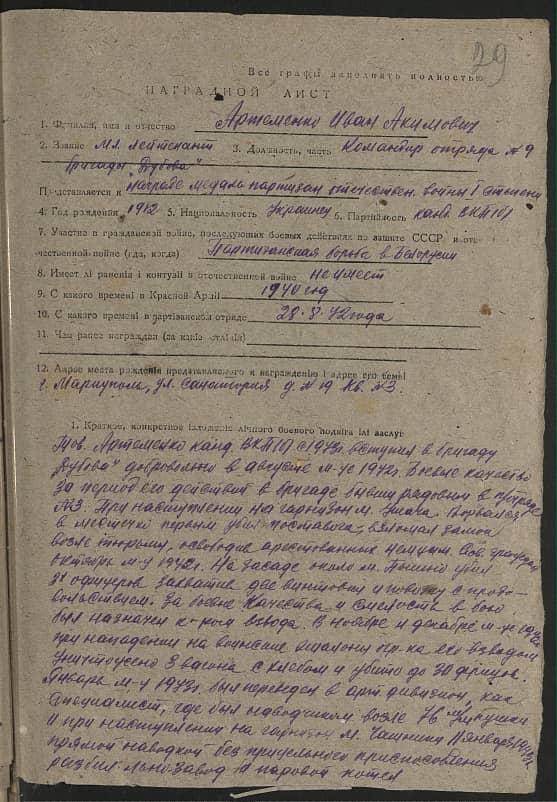 29
Все графы заполнять полностью
НАГРАДНОЙ ЛИСТ
1. Фамилия, имя и отчество Артеменко Иван Акимович
2. Звание Мл. лейтенант 3. Должность, часть Командир отряда №9
бригады "Дубова"
Представляется к награде медаль партизан отечествен. войны I степени
4. Год рождения 1912 5. Национальность Украинец 6. Партийность канд. ВКП(б)
7. Участие в гражданской войне, последующих боевых действиях по защите СССР и оте-
чественной войне (где, когда) Партизанская борьба в Белоруссии
8. Имеет лі ранения і контузіі в отечественной войне не имеет
9. С какого времені в Красной Арміі 1940 год
10. С какого времені в партізанском отряде 28.8.42 года
11. Чем ранее награжден (за какіе отлічія)
12. Адрес места рождения представляемого к награждению і адрес его семьі
г. Мариуполь, ул. Санатория д. №19 Кв. №3.
1. Краткое, конкретное ізложеніе лічного боевого подвіга ілі заслуг
Тов. Артеменко канд. ВКП(б) с 1943г. вступил в бригаду
"Дубова" добровольно в августе м-це 1942г. Боевые качества
за период его действий в бригаде бывши рядовым в отряде
№3. При наступлении на гарнизон м. Ушачи. Ворвался
в местечко первым убил взломал замок
возле тюрьмы, освободив арестованных немцами Сов. граждан
октябрь м-ц 1942г. На засаде около м. убил
2х офицеров захватив две винтовки и повозку с продо-
вольствием. За боевые качества и смелость в бою
был назначен к-ром взвода. В ноябре и декабре м-це 1942г
при нападении на воинские эшелоны пр-ка его взводом
уничтожено 3 вагона с хлебом и убито до 30 фрицев.
Январь м-ц 1943г. был переведен в арт. дивизион, как
специалист, где был наводчиком возле 76 мм пушки
и при наступлении на гарнизон м. Чашники 11 января 1943г.
прямой наводкой без прицельного приспособления
разбил льно-завод и паровой котел